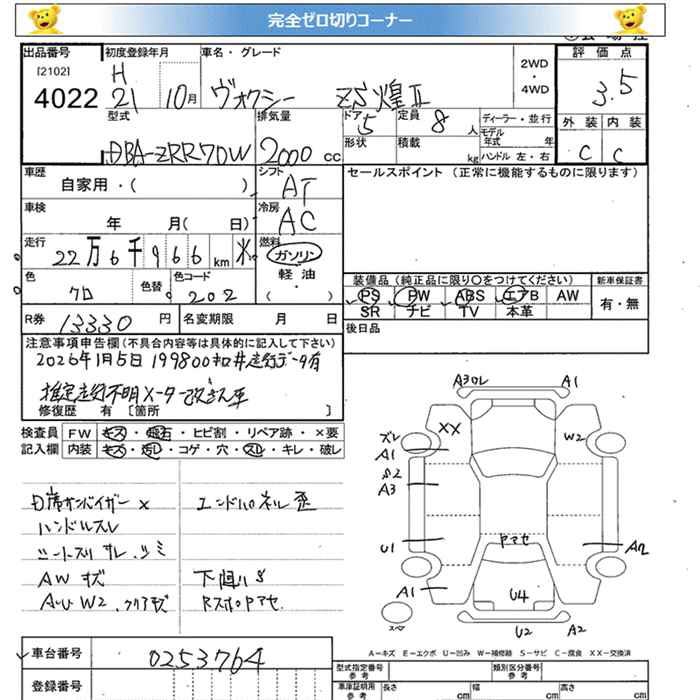 完全ゼロ切りコーナー
出品番号
[2102]
4022
初度登録年月
H
21 10月
車名・グレード
ヴォクシー ZS煌Ⅱ
2WD
・
4WD
評価点
3.5
外装 内装
C C
型式
DBA-ZRR70W
排気量
2000 CC
ドア 5
定員 8 人
ディーラー・並行
モデル年式 年
形状
積載 kg
ハンドル 左・右
車歴
自家用・( )
シフト
AT
セールスポイント(正常に機能するものに限ります)
車検
年 月( 日)
冷房
AC
走行
22万6千966km
燃料
ガソリン
軽油
・
( )
色
クロ
色替
色コード
202
装備品(純正品に限り○をつけてください)
PS PW ABS エアB AW
SR ナビ TV 本革
新車保証書
有・無
R券 13330円
名変期限 月 日
後日品
注意事項申告欄(不具合内容等は具体的に記入して下さい)
2026年1月5日 199800キロ
走行データ有
推定走行不明 メーター改ざん車
修復歴 有〔箇所 〕
検査員
記入欄
FW キズ・飛石・ヒビ割・リペア跡・×要
内装 キズ・汚レ・コゲ・穴・スレ・キレ・破レ
ハンドルスレ
AW キズ
エンドパネル歪
A3 0L A1
XX
W2
ズレ
A1
S2
A3
U1
ヤマセ
A2
A1
U4
U2 A2
A−キズ E−エクボ U−凹み W−補修跡 S−サビ C−腐食 XX−交換済
車台番号
0253764
登録番号
型式指定番号
参考
類別区分番号
参考
車庫証明用
参考
長さ cm
幅 cm
高さ cm